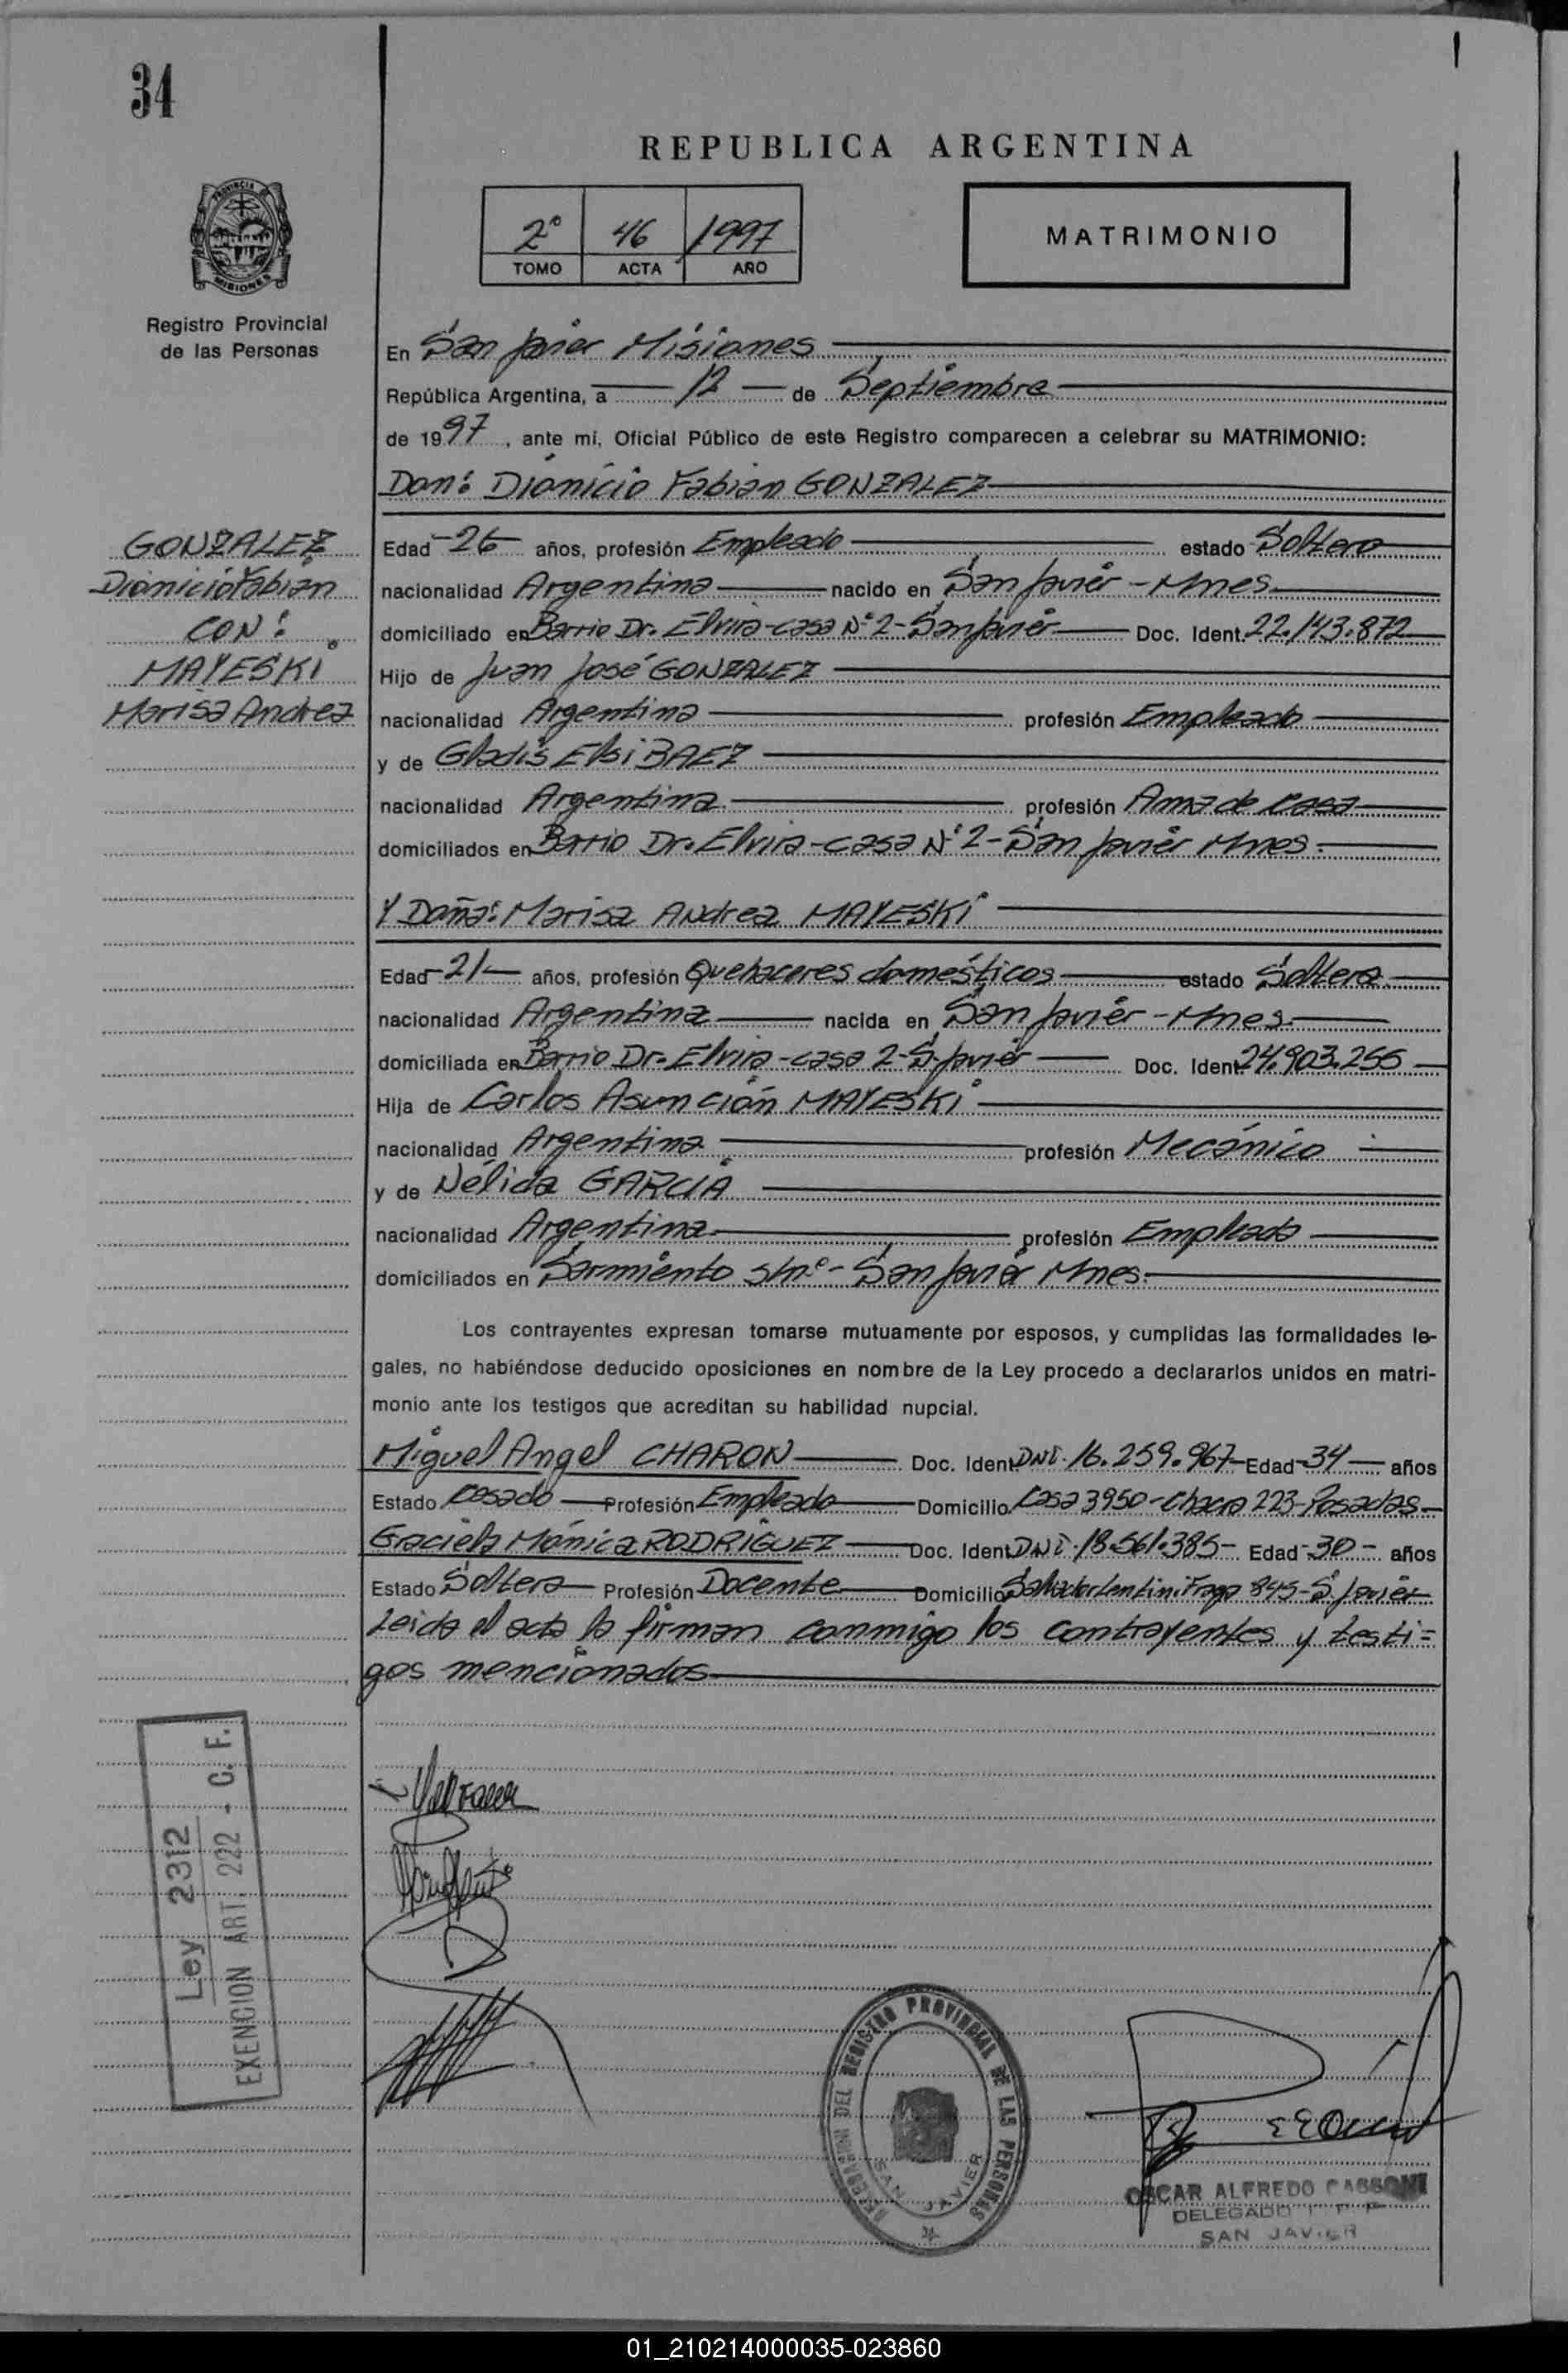 34
REPUBLICA ARGENTINA
PROVINCIA DE
MISIONES
Registro Provincial
de las Personas
2º 46 1997
TOMO ACTA AÑO
MATRIMONIO
En San Javier Misiones
República Argentina, a 12 de Septiembre
de 1997, ante mi, Oficial Público de este Registro comparecen a celebrar su MATRIMONIO:
Don: Dionicio Fabian GONZALEZ
GONZALEZ
Dionicio Fabian
CON:
MAYESKI
Marisa Andrea
Edad 26 años, profesión Empleado estado Soltero
nacionalidad Argentina nacido en San Javier - Mnes.
domiciliado en Barrio Dr. Elvira - casa Nº 2 - San Javier Doc. Ident. 22.143.872
Hijo de Juan José GONZALEZ
nacionalidad Argentina profesión Empleado
y de Gladis Elsi BAEZ
nacionalidad Argentina profesión Ama de casa
domiciliados en Barrio Dr. Elvira - casa Nº 2 - San Javier Mnes.
Y Doña: Marisa Andrea MAYESKI
Edad 21 años, profesión Quehaceres domésticos estado Soltera
nacionalidad Argentina nacida en San Javier - Mnes.
domiciliada en Barrio Dr. Elvira - casa 2 - S. Javier Doc. Ident. 24.903.255
Hija de Carlos Asunción MAYESKI
nacionalidad Argentina profesión Mecánico
y de Nélida GARCIA
nacionalidad Argentina profesión Empleada
domiciliados en Sarmiento s/nº - San Javier Mnes.
Los contrayentes expresan tomarse mutuamente por esposos, y cumplidas las formalidades le-
gales, no habiéndose deducido oposiciones en nombre de la Ley procedo a declararlos unidos en matri-
monio ante los testigos que acreditan su habilidad nupcial.
Miguel Angel CHARON Doc. Ident. DNI. 16.259.967 Edad 34 años
Estado Casado Profesión Empleado Domicilio Casa 3950 - Chacra 223 - Posadas
Graciela Mónica RODRIGUEZ Doc. Ident. DNI. 18.561.385 Edad 30 años
Estado Soltera Profesión Docente Domicilio Salvador Lentini Fraga 845 - S. Javier
Leida el acta la firman conmigo los contrayentes y testi=
gos mencionados
Ley 2312
EXENCION ART. 222 - C. F.
DELEGACION DEL REGISTRO PROVINCIAL DE LAS PERSONAS
SAN JAVIER
OSCAR ALFREDO CASSONI
DELEGADO
SAN JAVIER
01_210214000035-023860